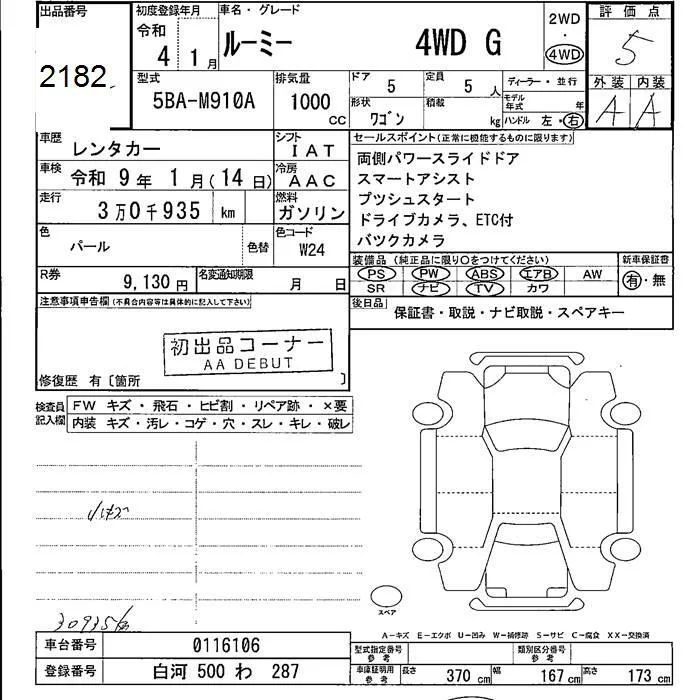 出品番号
2182
初度登録年月
令和
4 1月
車名・グレード
ルーミー 4WD G
2WD
・
4WD
評価点
5
型式
5BA-M910A
排気量
1000
CC
ドア
5
定員
5 人
形状
ワゴン
積載
kg
ディーラー・並行
モデル年式 年
ハンドル 左・右
外装 内装
A A
車歴
レンタカー
シフト
IAT
車検
令和 9年 1月(14日)
冷房
AAC
走行
3万0千935 km
燃料
ガソリン
色
パール
色替
色コード
W24
R券
9,130円
名変通知期限
月 日
セールスポイント(正常に機能するものに限ります)
両側パワースライドドア
スマートアシスト
プツシュスタート
ドライブカメラ、ETC付
バツクカメラ
装備品(純正品に限り○をつけてください)
PS PW ABS エアB AW
SR ナビ TV カワ
新車保証書
有・無
後日品
保証書・取説・ナビ取説・スペアキー
注意事項申告欄(不具合内容等は具体的に記入して下さい)
初出品コーナー
AA DEBUT
修復歴 有〔箇所 〕
検査員記入欄
FW キズ・飛石・ヒビ割・リペア跡・×要
内装 キズ・汚レ・コゲ・穴・スレ・キレ・破レ
小キズ
30935km
スペア
A-キズ E-エクボ U-凹み W-補修跡 S-サビ C-腐食 XX-交換済
車台番号
0116106
登録番号
白河 500 わ 287
型式指定番号
参考
類別区分番号
参考
車庫証明用
参考
長さ 370 cm 幅 167 cm 高さ 173 cm